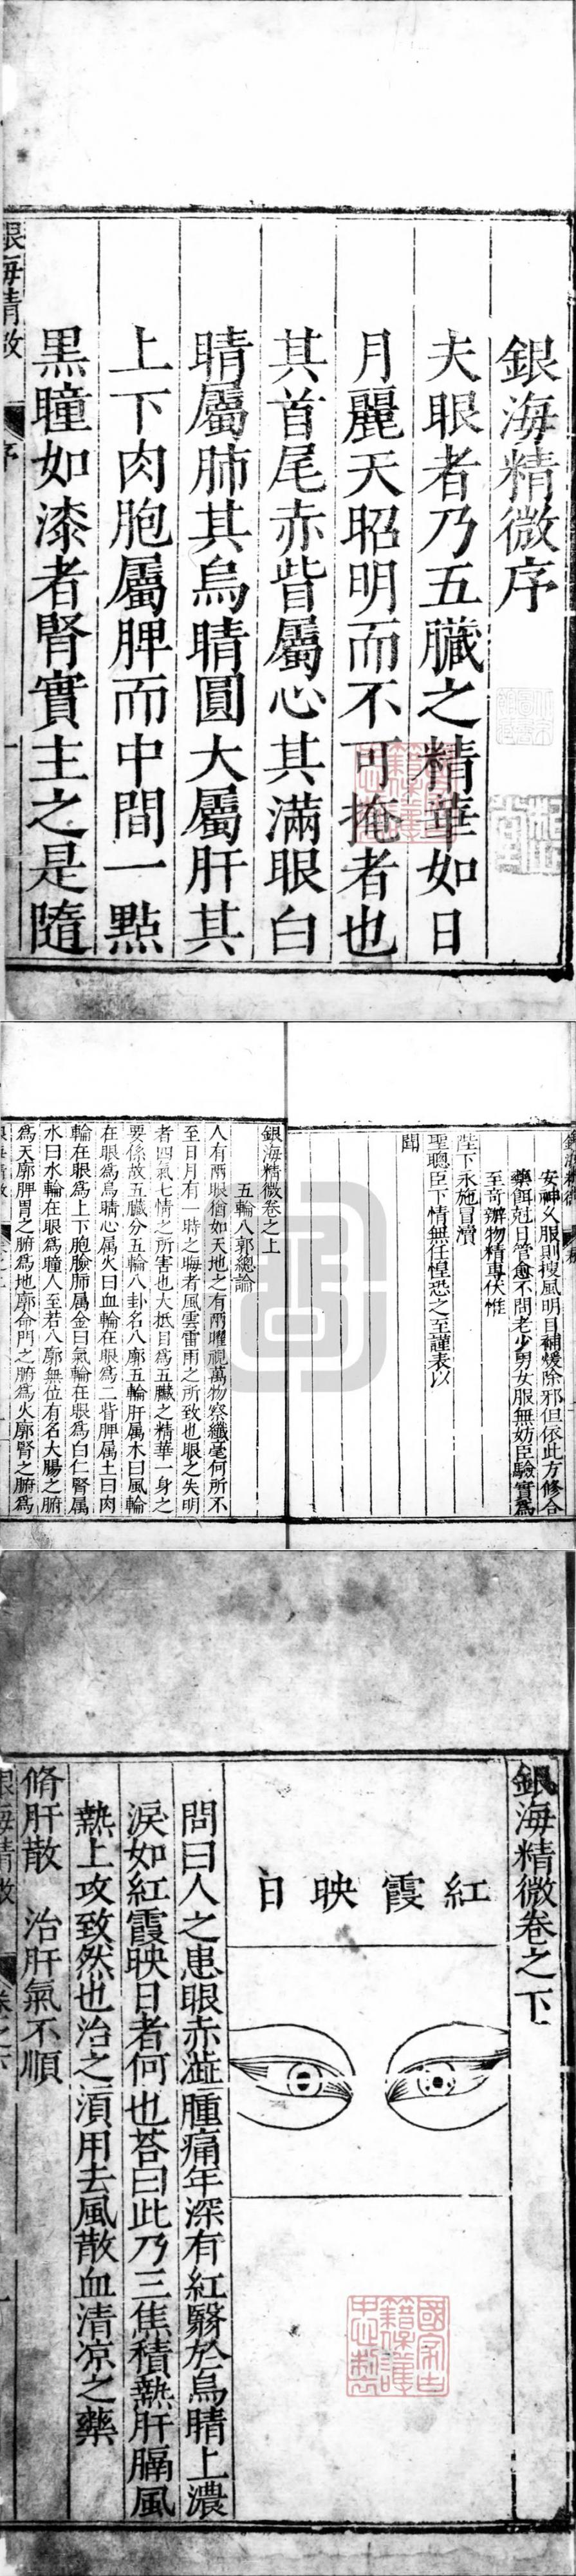 銀海精微序
夫眼者乃五臟之精華如日
月麗天昭明而不可掩者也
其首尾赤眥屬心其滿眼白
睛屬肺其烏睛圓大屬肝其
上下肉胞屬脾而中間一點
黑瞳如漆者腎實主之是隨
銀海精微
序
安神久服則搜風明目補煖除邪但依此方修合
藥餌尅日管愈不問老少男女服無妨臣驗實爲
至奇辦物精專伏惟
陛下永施冒瀆
聖聰臣下情無任惶恐之至謹表以
聞
銀海精微卷之上
五輪八郭總論
人有兩眼猶如天地之有兩曜視萬物察纖毫何所不
至日月有一時之晦者風雲雷雨之所致也眼之失明
者四氣七情之所害也大抵目爲五臟之精華一身之
要係故五臟分五輪八卦名八廓五輪肝属木曰風輪
在眼爲烏睛心属火曰血輪在眼爲二眥脾属土曰肉
輪在眼爲上下胞瞼肺属金曰氣輪在眼爲白仁腎属
水曰水輪在眼爲瞳人至若八廓無位有名大腸之腑
爲天廓脾胃之腑爲地廓命門之腑爲火廓腎之腑爲
銀海精微卷之下
紅霞映日
問曰人之患眼赤澁腫痛年深有紅翳於烏睛上濃
淚如紅霞映日者何也荅曰此乃三焦積熱肝膈風
熱上攻致然也治之湏用去風散血清凉之藥
脩肝散　治肝氣不順
銀海精微
卷之下
國家古籍保護